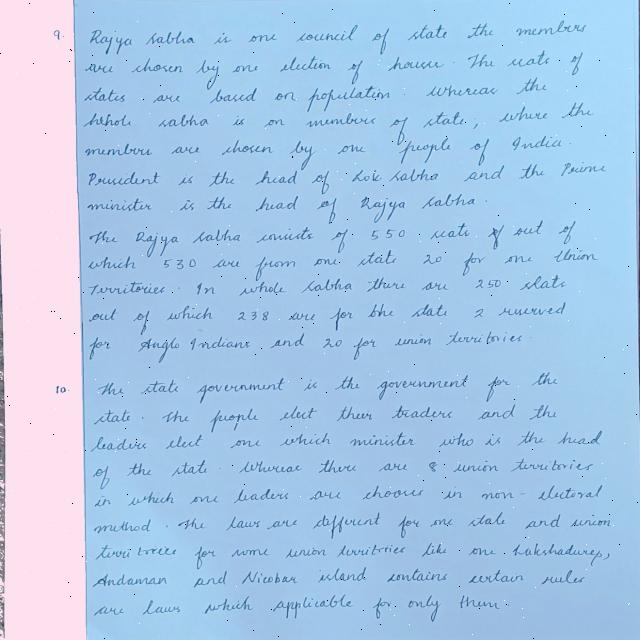 9. Rajya sabha is one council of state the members
are chosen by one election of houses. The seats of
states are based on population whereas the
whole sabha is on members of state, where the
members are chosen by one people of India.
President is the head of Lok sabha and the Prime
minister is the head of Rajya sabha.
The Rajya sabha consists of 550 seats of out of
which 530 are from one state 20 for one Union
Territories. In whole sabha there are 250 slats
out of which 238 are for bhe state 2 reserved
for Anglo Indians and 20 for union territories.
10. The state government is the government for the
state. The people elect their leaders and the
leaders elect one which minister who is the head
of the state. Whereas there are 8 union territories
in which one leaders are chooses in non-electoral
method. The laws are different for one state and union
territories for some union territories like one Lakshadweep,
Andaman and Nicobar island contains certain rules
are laws which applicable for only them.